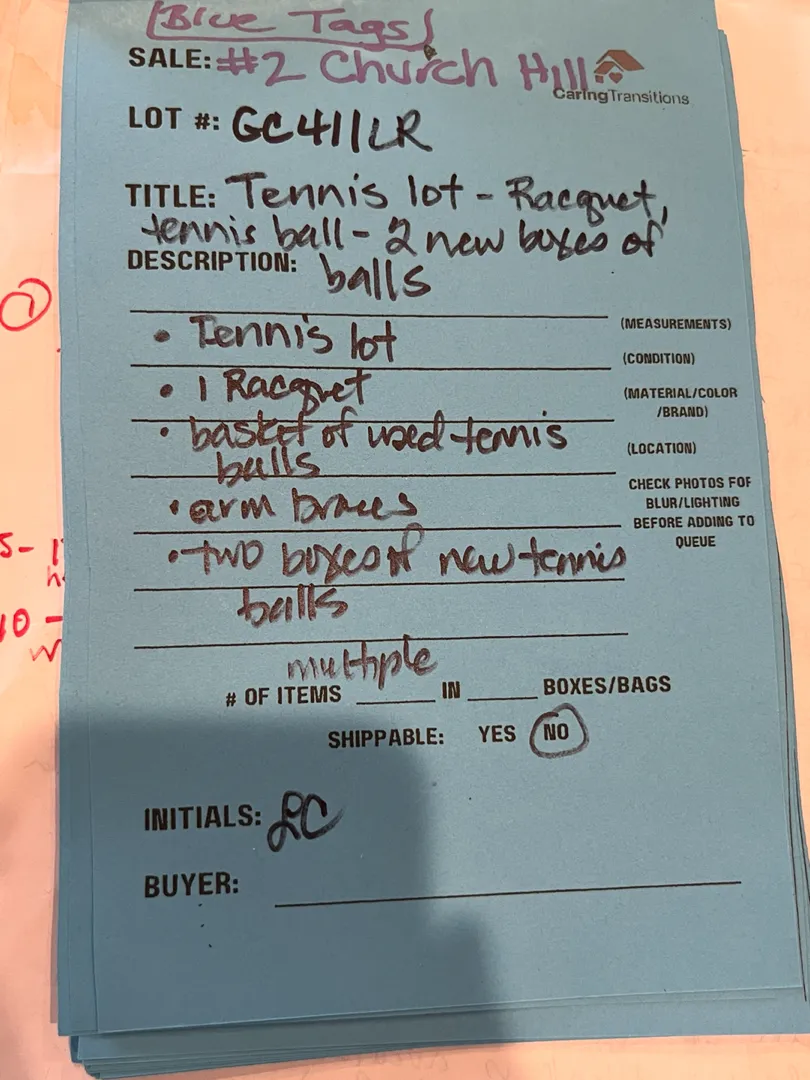 [Blue Tags]
SALE: #2 Church Hill
CaringTransitions
LOT #: GC411LR
TITLE: Tennis lot - Racquet,
tennis ball - 2 new boxes of
DESCRIPTION: balls
(MEASUREMENTS)
• Tennis lot
(CONDITION)
• 1 Racquet
(MATERIAL/COLOR
/BRAND)
• basket of used tennis
balls
(LOCATION)
CHECK PHOTOS FOR
BLUR/LIGHTING
BEFORE ADDING TO
QUEUE
• arm braces
• two boxes of new tennis
balls
multiple
# OF ITEMS ______ IN ______ BOXES/BAGS
SHIPPABLE: YES NO
INITIALS: LC
BUYER:
1
10 -